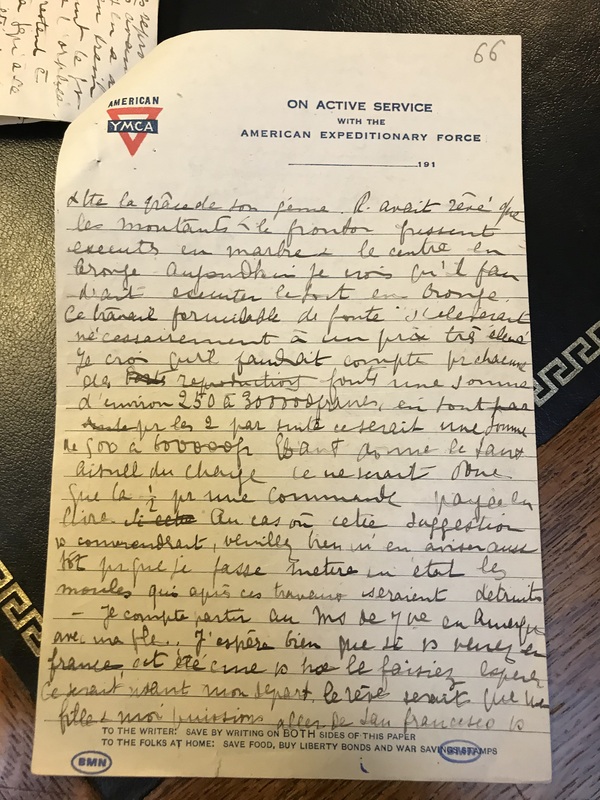 66
AMERICAN
YMCA
ON ACTIVE SERVICE
WITH THE
AMERICAN EXPEDITIONARY FORCE
191
la grâce de son génie. R. avait rêvé que
les montants & le fronton fussent
executés en marbre & le centre en
bronze aujourd'hui je crois qu'il
executer le tout en bronze.
Ce travail formidable de fonte s'eleverait
nécessairement à un prix très élevé
Je crois qu'il faudrait compte pr chacune
des reproductions fonte une somme
d'environ 250 à 300000 francs, en tout
pr les 2 par suite ce serait une somme
de 500 à 600000 fr donné le taux
actuel du change ce ne serait donc
que la 1/2 pr une commande payée en
livre. Au cas où cette suggestion
vs conviendrait, veuillez bien m'en aviser aussi
tôt pr que je fasse mettre en état les
moules qui après ces travaux seraient détruits
- Je compte partir au ms de 7bre en Amerique
avec ma fle.. J'espère bien que si vs venez en
france cet été cme vs me le faisiez esperer
Ce serait avant mon départ. le rêve serait que ma
fille & moi puissions aller de San francesco
TO THE WRITER: SAVE BY WRITING ON BOTH SIDES OF THIS PAPER
TO THE FOLKS AT HOME: SAVE FOOD, BUY LIBERTY BONDS AND WAR SAVINGS STAMPS
BMN
BMN